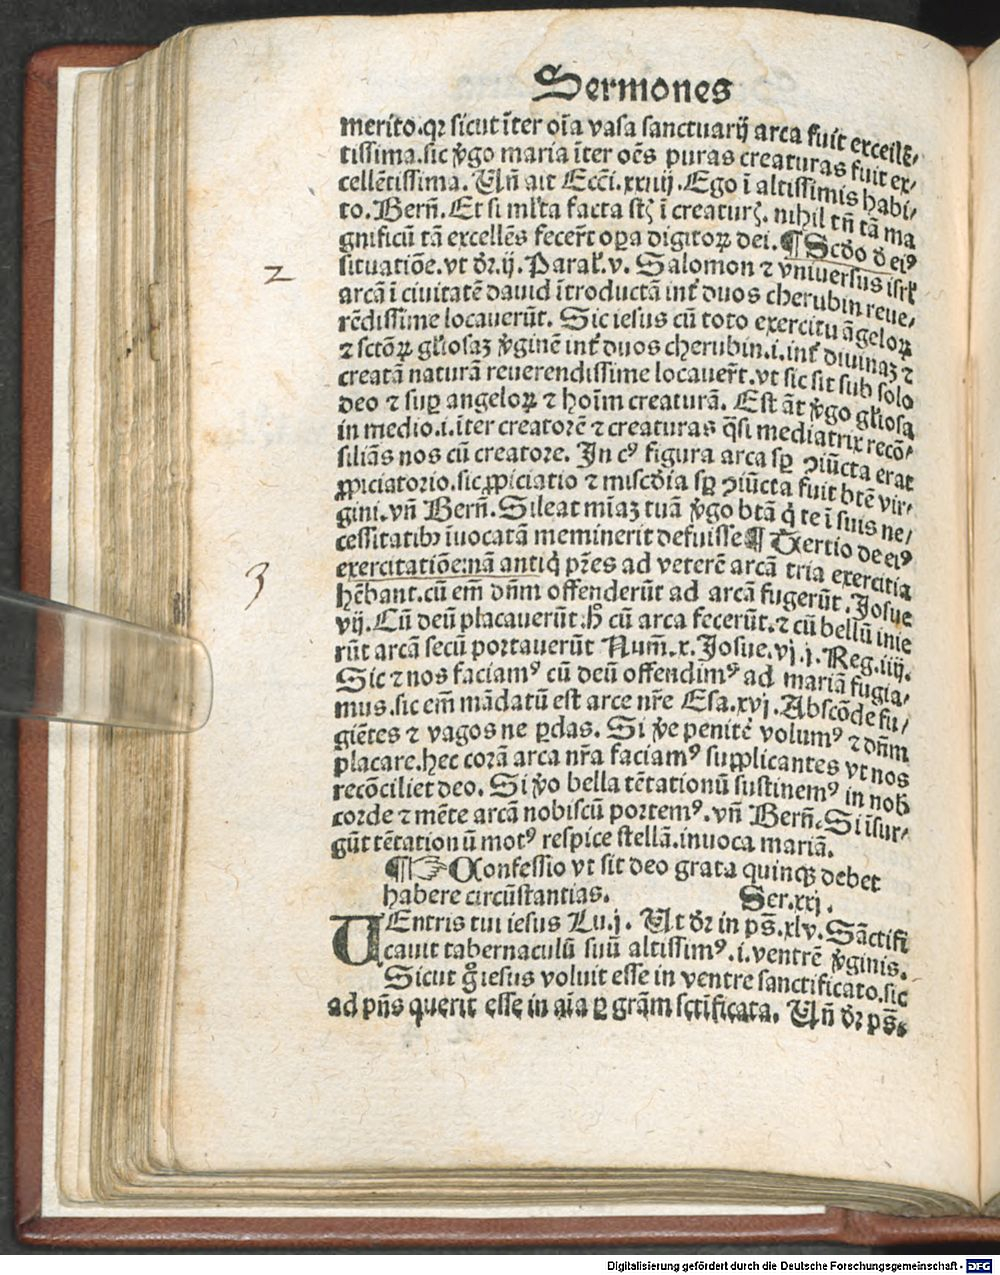 Sermones
merito.qꝛ sicut ĩter oĩa vasa sanctuarij arca fuit excellẽ/
tissima.sic ꝟgo maria ĩter oẽs puras creaturas fuit ex/
cellẽtissima. Uñ ait Ecci.xxiiij. Ego ĩ altissimis habi/
to. Berñ. Et si ml̃ta facta st̃ ĩ creaturꝭ. nihil tñ tã ma
gnificũ tã excellẽs fecer̃t oꝑa digitoꝝ dei. ¶ Scd̃o d̃ eiꝰ
situatiõe.vt dr̃.ij. Paral̃.v. Salomon ⁊ vniuersus isrl̃
arcã ĩ ciuitatẽ dauid ĩtroductã int̃ duos cherubin reue/
rẽdissime locauerũt. Sic iesus cũ toto exercitu ãgeloꝝ
⁊ sctõꝝ gl̃iosaꝫ ꝟginẽ int̃ duos cherubin.i.int̃ diuinaꝫ ⁊
creatã naturã reuerendissime locauer̃t.vt sic sit sub solo
deo ⁊ suꝑ angeloꝝ ⁊ hoĩm creaturã. Est ãt ꝟgo gl̃iosa
in medio.i.ĩter creatorẽ ⁊ creaturas q̃si mediatrix recõ/
siliãs nos cũ creatore. In cꝰ figura arca sꝑ ꝯiũcta erat
ꝓpiciatorio.sic ꝓpiciatio ⁊ miscd̃ia sꝑ ꝯiũcta fuit btẽ vir/
gini.vñ Berñ. Sileat mĩaꝫ tuã ꝟgo btã q̃ te ĩ suis ne/
cessitatibꝰ ĩuocatã meminerit defuisse ¶ Tertio de eiꝰ
exercitatiõe:nã antiq̃ pr̃es ad veterẽ arcã tria exercitia
hẽbant.cũ em̃ dñm offenderũt ad arcã fugerũt. Josue
vij. Cũ deũ placauerũt.h̃ cũ arca fecerũt.⁊ cũ bellũ inie
rũt arcã secũ portauerũt Num̃.x. Josue.vj.j. Reg.iiij.
Sic ⁊ nos faciamꝰ cũ deũ offendimꝰ ad mariã fugia/
mus.sic em̃ mãdatũ est arce nr̃e Esa.xvj. Abscõde fu/
giẽtes ⁊ vagos ne ꝑdas. Si ꝟe penitẽ volumꝰ ⁊ dñm
placare.hec corã arca nr̃a faciamꝰ supplicantes vt nos
recõciliet deo. Si ꝟo bella tẽtationũ sustinemꝰ in nob̃
corde ⁊ mẽte arcã nobiscũ portemꝰ.vñ Berñ. Si ĩsur/
gũt tẽtationũ motꝰ respice stellã.inuoca mariã.
¶ ☞ Confessio vt sit deo grata quinqꝫ debet
habere circũstantias. Ser.xxj.
VEntris tui iesus Lu.j. Ut dr̃ in ps̃.xlv. Sãctifi
cauit tabernaculũ suũ altissimꝰ.i.ventrẽ ꝟginis.
Sicut g̃ iesus voluit esse in ventre sanctificato.sic
ad pñs querit esse in aĩa ꝑ grãm sctĩficata. Uñ dr̃ ps̃.
2
3
Digitalisierung gefördert durch die Deutsche Forschungsgemeinschaft - DFG